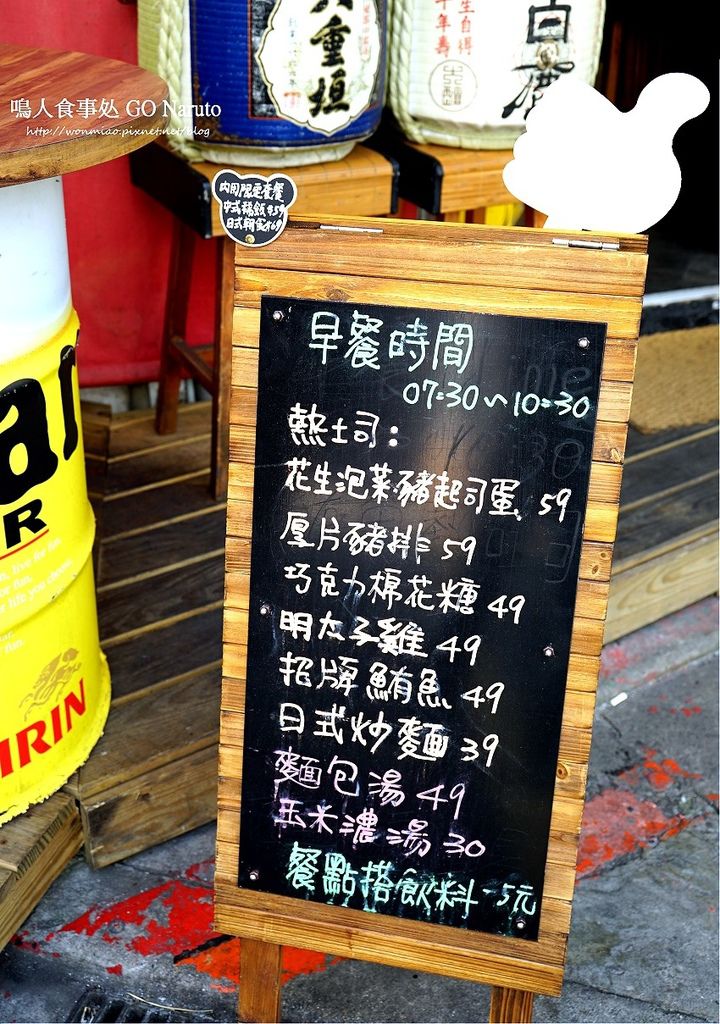 重垣
生自得
十年壽
白鹿
鳴人食事处 GO Naruto
http://wonmiao.pixnet.net/blog
內用限定套餐
中式糯飯 $59
早餐時間
07:30~10:30
熱土司:
花生泡菜豬起司蛋 59
厚片豬排 59
巧克力棉花糖 49
明太子雞 49
招牌鮪魚 49
日式炒麵 39
麵包湯 49
玉米濃湯 30
餐點搭飲料-5元
ar
R
IRIN